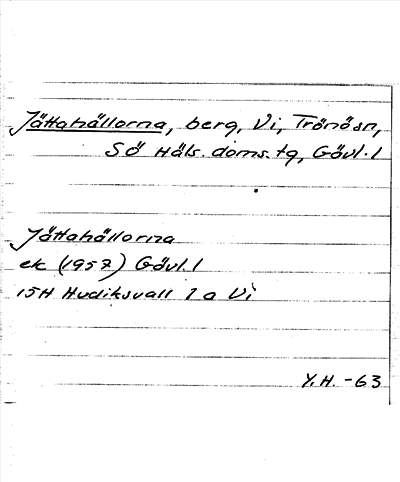 Jättahällorna, berg, Vi, Trönösn,
SÖ Häls. doms. tg, Gävl. l
Jättahällorna
ek (1957) Gävl. l
15H Hudiksvall 1 a Vi
Y.H. -63